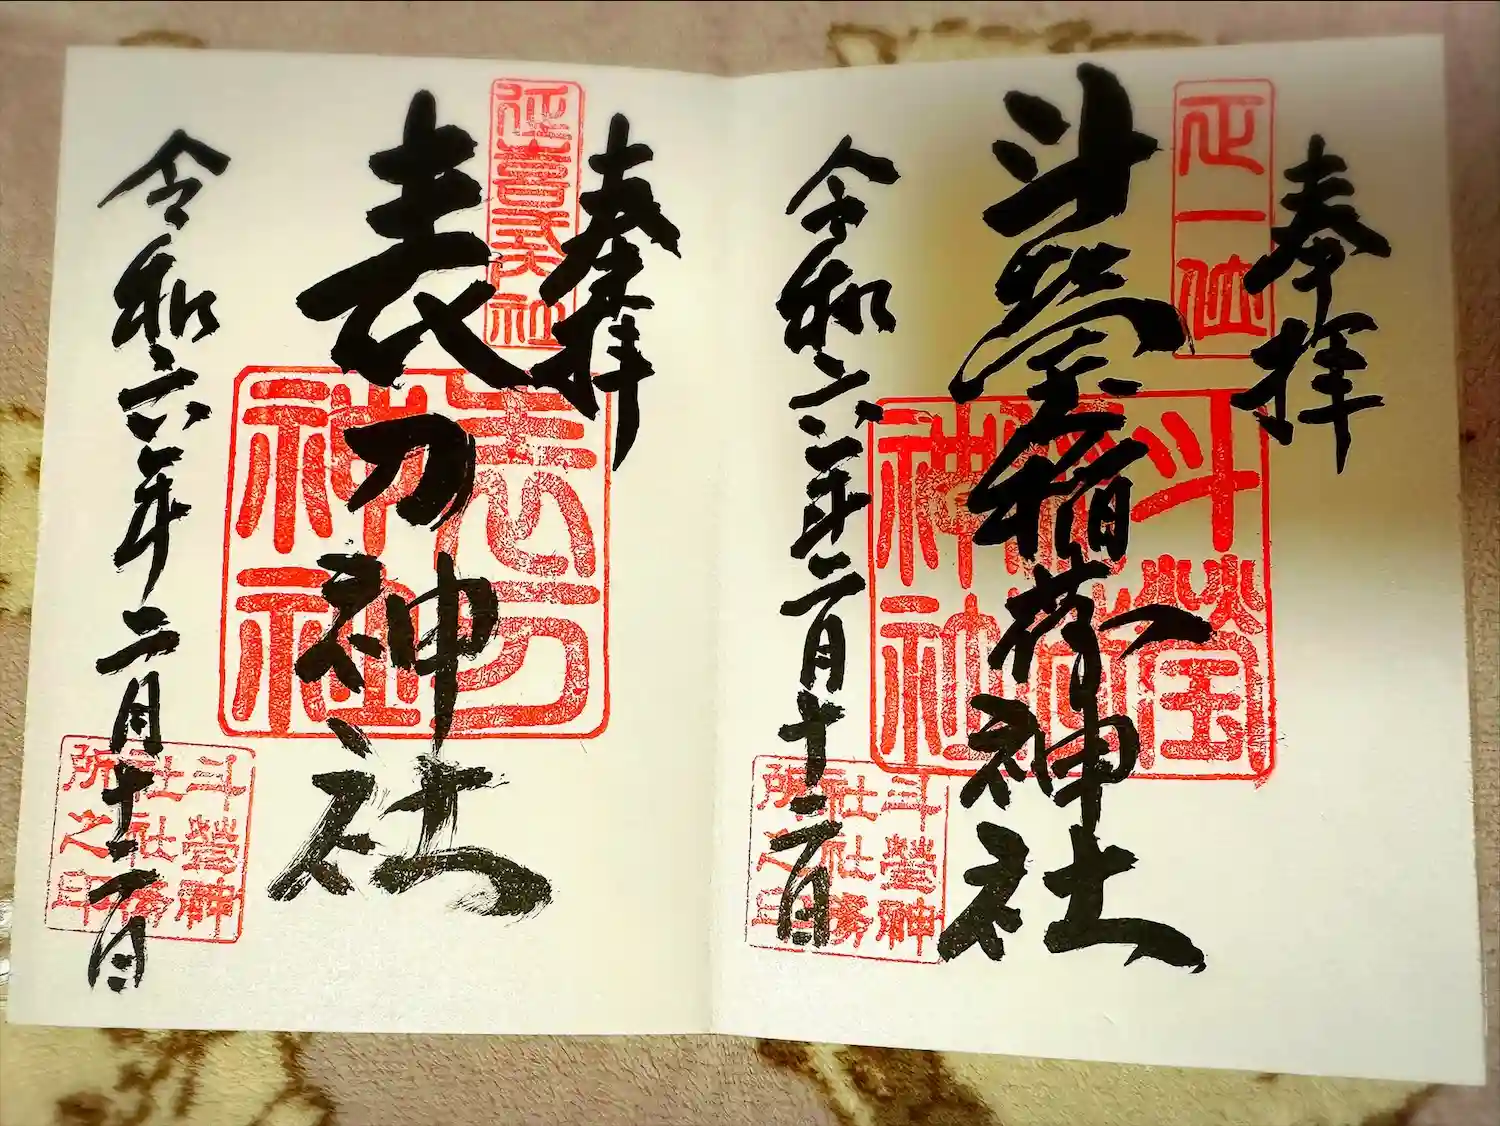 奉拝
正一位
斗瑩稲荷神社
斗瑩稲荷神社
令和六年二月十二日
斗瑩神社社務所之印
奉拝
延喜式社
表刀神社
表刀神社
令和六年二月十二日
斗瑩神社社務所之印